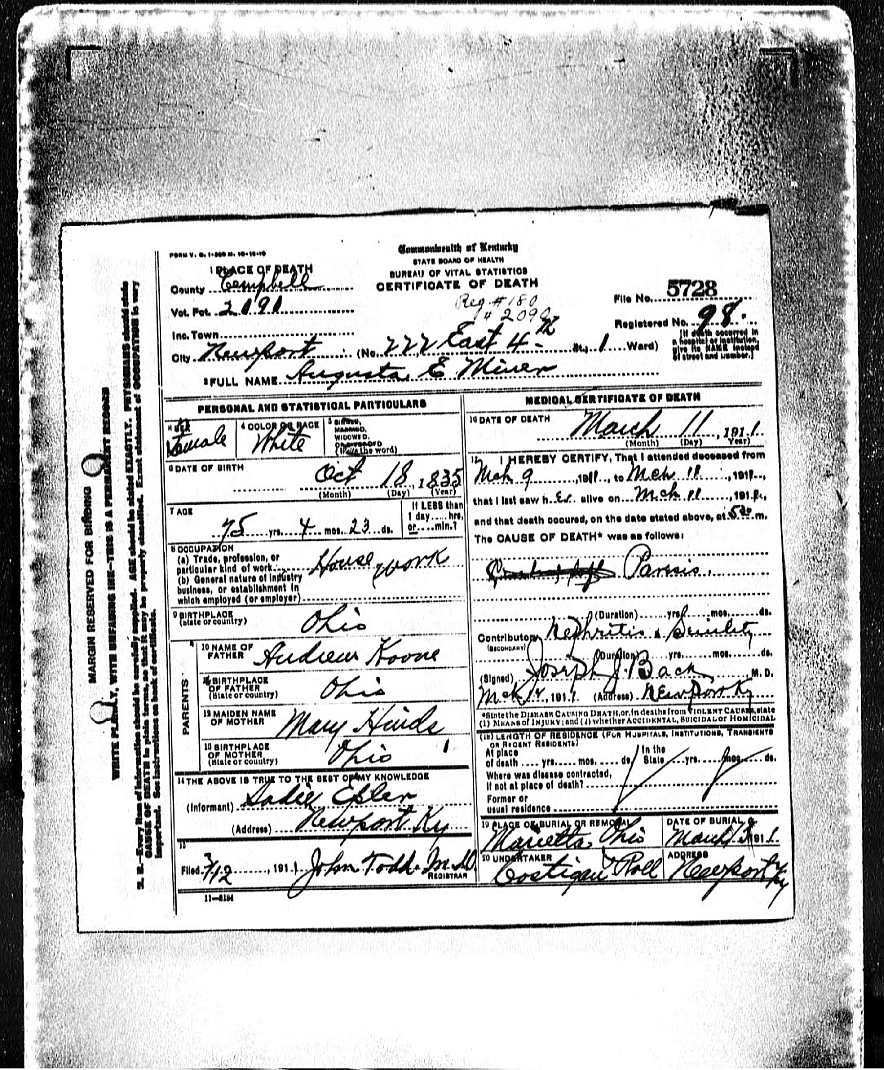 FORM V. S. 1-300 M. 10-10-10
Commonwealth of Kentucky
STATE BOARD OF HEALTH
BUREAU OF VITAL STATISTICS
CERTIFICATE OF DEATH
1 PLACE OF DEATH
County Campbell
Vot. Pct. 2191
Inc. Town
City Newport (No. 222 East 4th St., 1 Ward)
Reg # 180
# 2090
File No. 5728
Registered No. 98.
[If death occurred in
a hospital or institution,
give its NAME instead
of street and number.]
2 FULL NAME Augusta E Miner
PERSONAL AND STATISTICAL PARTICULARS
3 SEX
Female
4 COLOR OR RACE
White
5 SINGLE,
MARRIED,
WIDOWED,
OR DIVORCED
(Write the word)
6 DATE OF BIRTH
Oct 18, 1835
(Month) (Day) (Year)
7 AGE
75 yrs. 4 mos. 23 ds.
If LESS than
1 day....hrs.
or....min.?
8 OCCUPATION
(a) Trade, profession, or
particular kind of work House work
(b) General nature of industry
business, or establishment in
which employed (or employer)
9 BIRTHPLACE
(State or country) Ohio
PARENTS
10 NAME OF
FATHER Andrew Koone
11 BIRTHPLACE
OF FATHER
(State or country) Ohio
12 MAIDEN NAME
OF MOTHER Mary Hinds
13 BIRTHPLACE
OF MOTHER
(State or country) Ohio
14 THE ABOVE IS TRUE TO THE BEST OF MY KNOWLEDGE
(Informant) Sadie Epler
(Address) Newport Ky
15
Filed 3/12, 1911 John Todd M.D.
REGISTRAR
11-6184
MEDICAL CERTIFICATE OF DEATH
16 DATE OF DEATH
March 11 1911
(Month) (Day) Year)
17 I HEREBY CERTIFY, That I attended deceased from
Mch 9, 1911, to Mch 11, 191
that I last saw her alive on Mch 11, 191
and that death occured, on the date stated above, at 5 m.
The CAUSE OF DEATH* was as follows:
Paresis.
(Duration) yrs. mos. ds.
Contributory Nephritis & Senility
(SECONDARY)
(Duration) yrs. mos. ds.
(Signed) Joseph J. Back M. D.
Mch, 1911 (Address) Newport Ky
*State the DISEASE CAUSING DEATH, or, in deaths from VIOLENT CAUSES, state
(1) MEANS OF INJURY; and (2) whether ACCIDENTAL, SUICIDAL or HOMICIDAL
(18) LENGTH OF RESIDENCE (FOR HOSPITALS, INSTITUTIONS, TRANSIENTS
OR RECENT RESIDENTS)
At place
of death yrs. mos. ds.
In the
State yrs. mos. ds.
Where was disease contracted,
if not at place of death?
Former or
usual residence
19 PLACE OF BURIAL OR REMOVAL
Marietta, Ohio
DATE OF BURIAL
March 13 1911
20 UNDERTAKER
Costigan & Roll
ADDRESS
Newport Ky
MARGIN RESERVED FOR BINDING
WRITE PLAINLY, WITH UNFADING INK—THIS IS A PERMANENT RECORD
N. B.—Every item of information should be carefully supplied. AGE should be stated EXACTLY. PHYSICIANS should state
CAUSE OF DEATH in plain terms, so that it may be properly classified. Exact statement of OCCUPATION is very
important. See instructions on back of certificate.